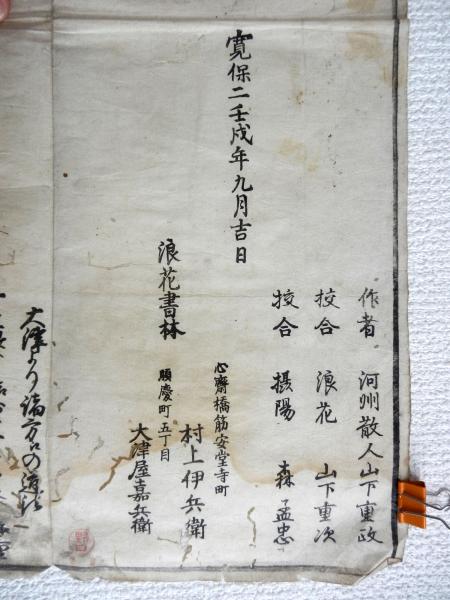 作者 河州散人山下重政
挍合 浪花 山下重次
挍合 摂陽 森孟忠
寛保二壬戌年九月吉日
浪花書林
心齋橋筋安堂寺町
村上伊兵衛
順慶町五丁目
大津屋嘉兵衛
大津より諸方への道法